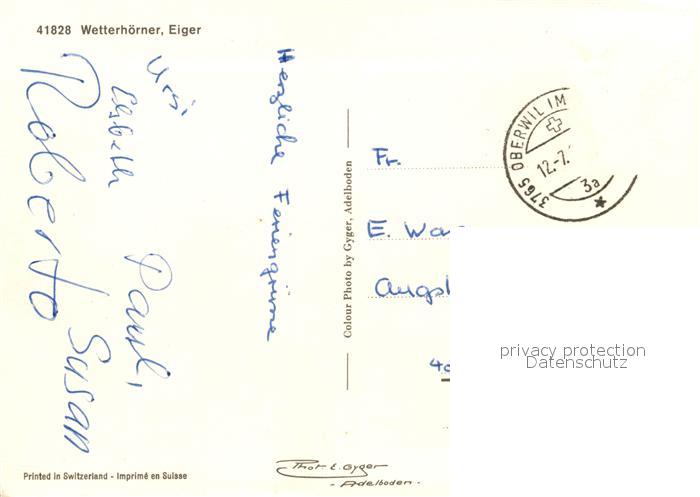 41828 Wetterhörner, Eiger
Herzliche Feriengrüsse
Ursi
Elsbeth
Pauli,
Roberto
Susan
Colour Photo by Gyger, Adelboden
3765 OBERWIL IM
12.-7.
3a
Fr.
E. Wa
Augst
40
privacy protection
Datenschutz
Printed in Switzerland - Imprimé en Suisse
Phot E. Gyger
- Adelboden -